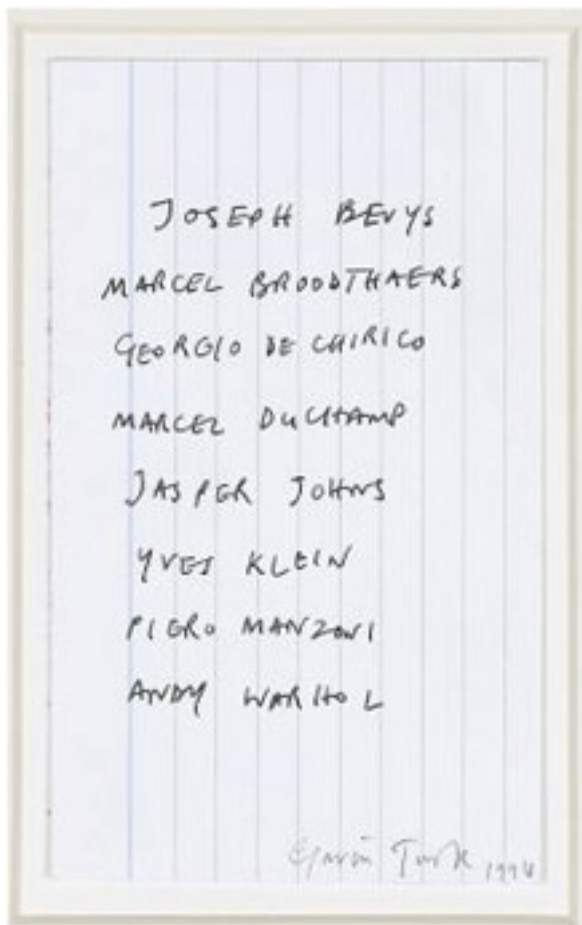 JOSEPH BEUYS
MARCEL BROODTHAERS
GEORGIO DE CHIRICO
MARCEL DUCHAMP
JASPER JOHNS
YVES KLEIN
PIERO MANZONI
ANDY WARHOL
Gavin Turk